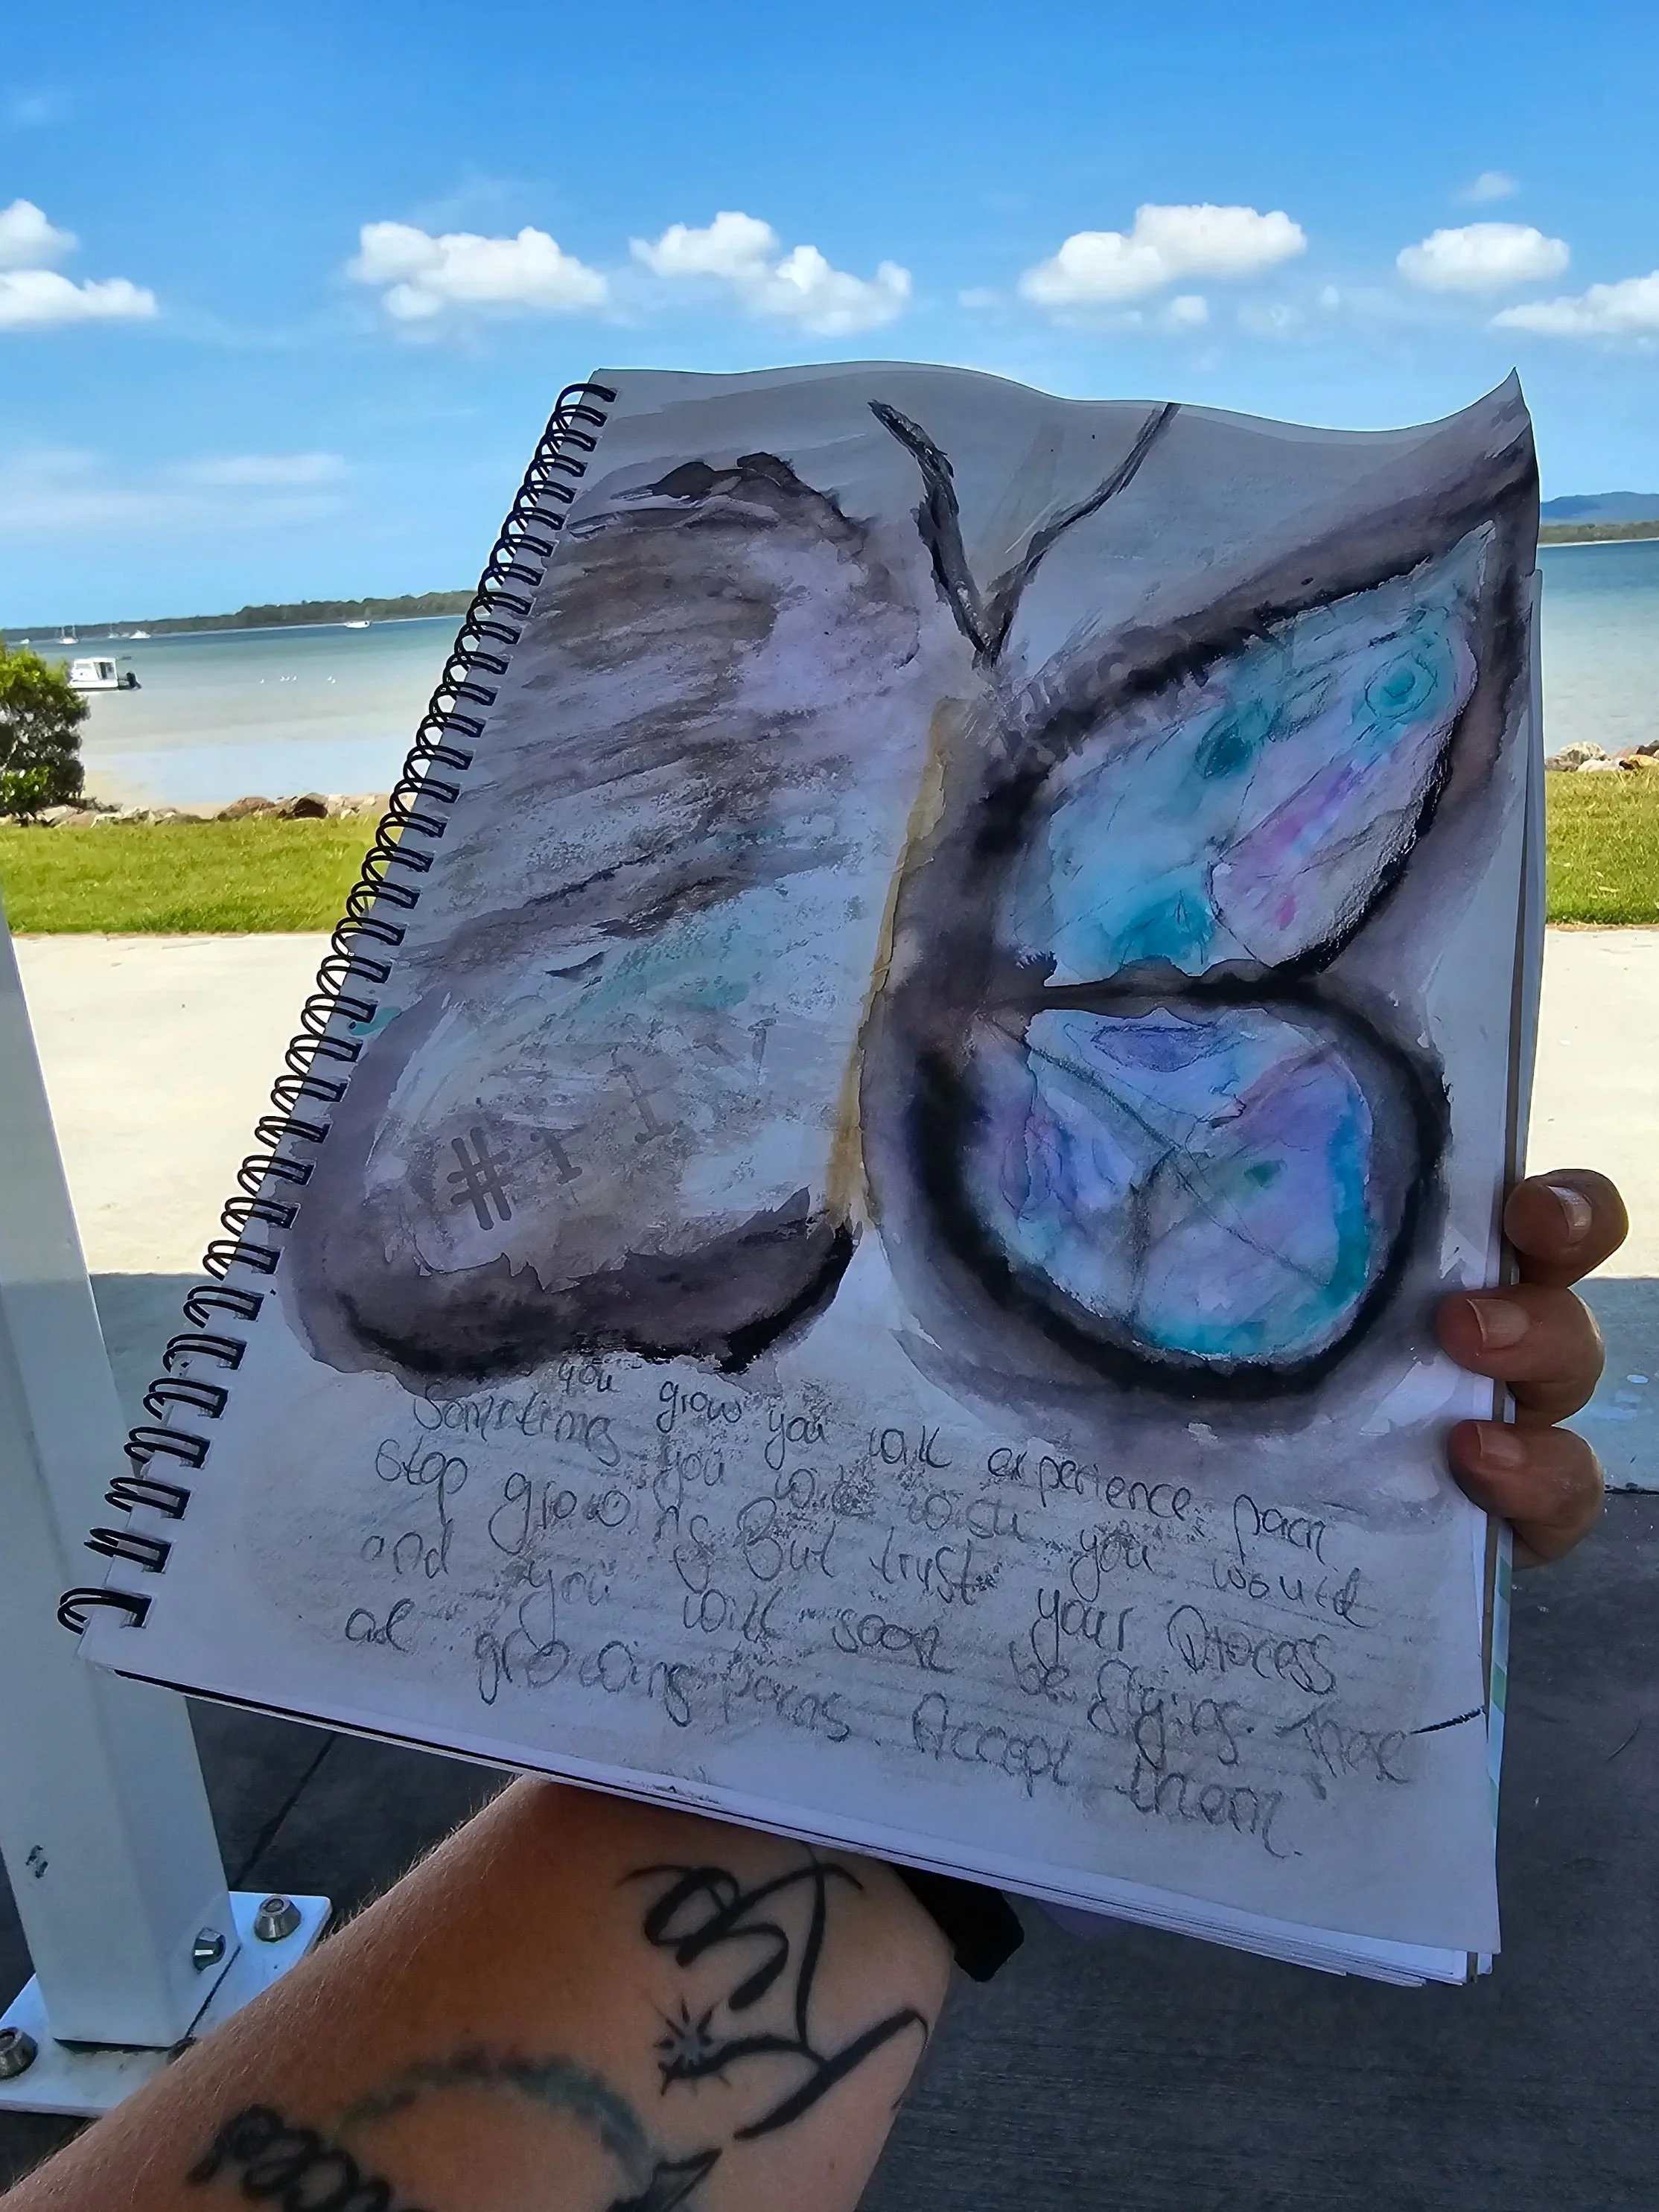 #111
Sometimes you grow you will experience pain
Stop growing you will wish you would
and you But trust your Process
are growing pains will soon be flying. These
Accept them.